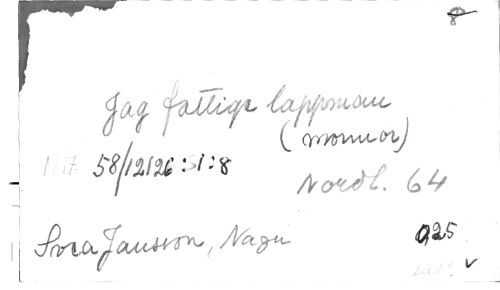 8
Jag fattige lappman
(mormor)
58/12126:1:8
Nordl. 64
Svea Jansson, Nagu
025